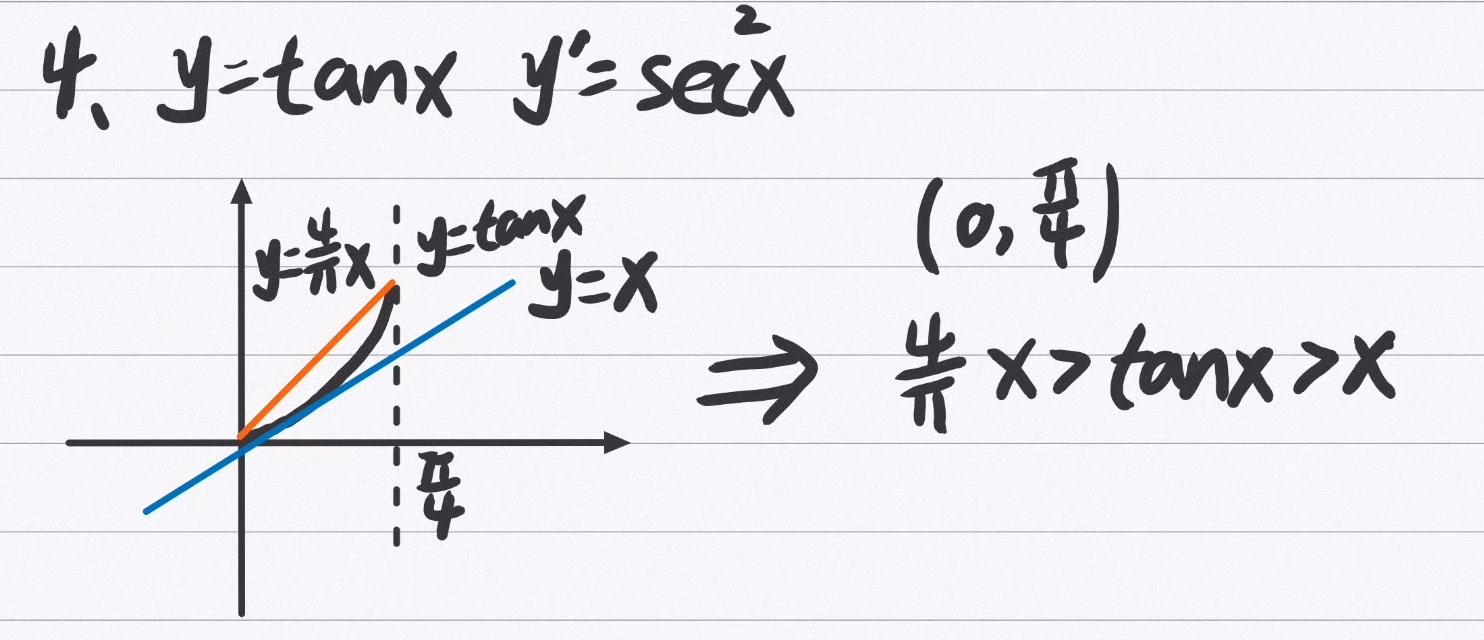 4、 y=tanx y′=sec²x
y=4/π x
y=tanx
y=x
π/4
(0, π/4)
⇒ 4/π x > tanx > x